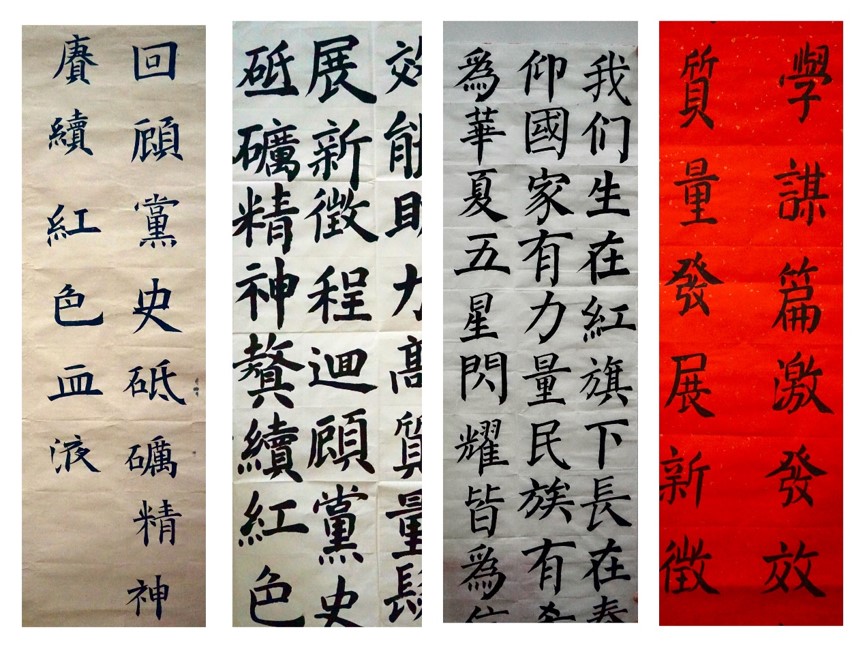 回顧黨史砥礪精神
賡續紅色血液
效能助力高質量髮
展新徵程迴顧黨史
砥礪精神贅續紅色
我们生在紅旗下長在春
仰國家有力量民族有希
爲華夏五星閃耀皆爲信
學謀篇激發效
質量發展新徵